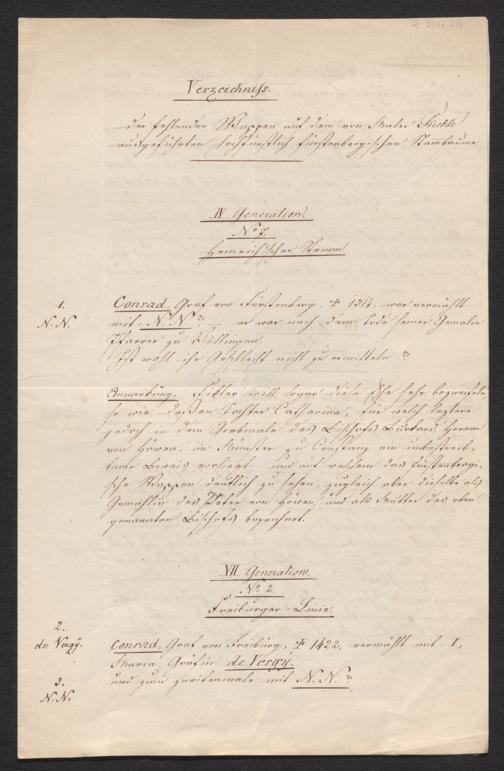 Verzeichniß.
der fehlenden Wappen auf dem von Maler
ausgeführten hochfürstlich fürstenbergischen Stambaume.
IV Generation.
No 7.
Heinrich'scher Stamm.
1.
N. N.
Conrad, Graf von Fürstenberg. † 131 war vermählt
mit N. N? er war nach dem Tode seiner Gemalin
Pfarrer zu Villingen.
Ist wohl ihr Geschlecht nicht zu ermitteln?
Anmerkung. will sogar diese Ehe sehr bezweifeln,
so wie dessen Tochter Catharina, für welch leztere
jedoch in dem Grabmale des Bischofs Burkard Herrn
von Höwen, im Münster zu Constanz ein unbestreit-
barer Beweis vorliegt, und auf welchem das fürstenbergi-
sche Wappen deutlich zu sehen, zugleich aber dieselbe als
Gemahlin des Peter von Höwen, und als Mutter des oben
genannten Bischofs bezeichnet.
VII Generation.
No 2.
Freiburger-Linie.
2.
de Vergy.
Conrad, Graf von Freiburg, † 1422, vermählt mit I,
Maria, Gräfin de Vergy.
3.
N. N.
und zum zweitenmale mit N. N.?